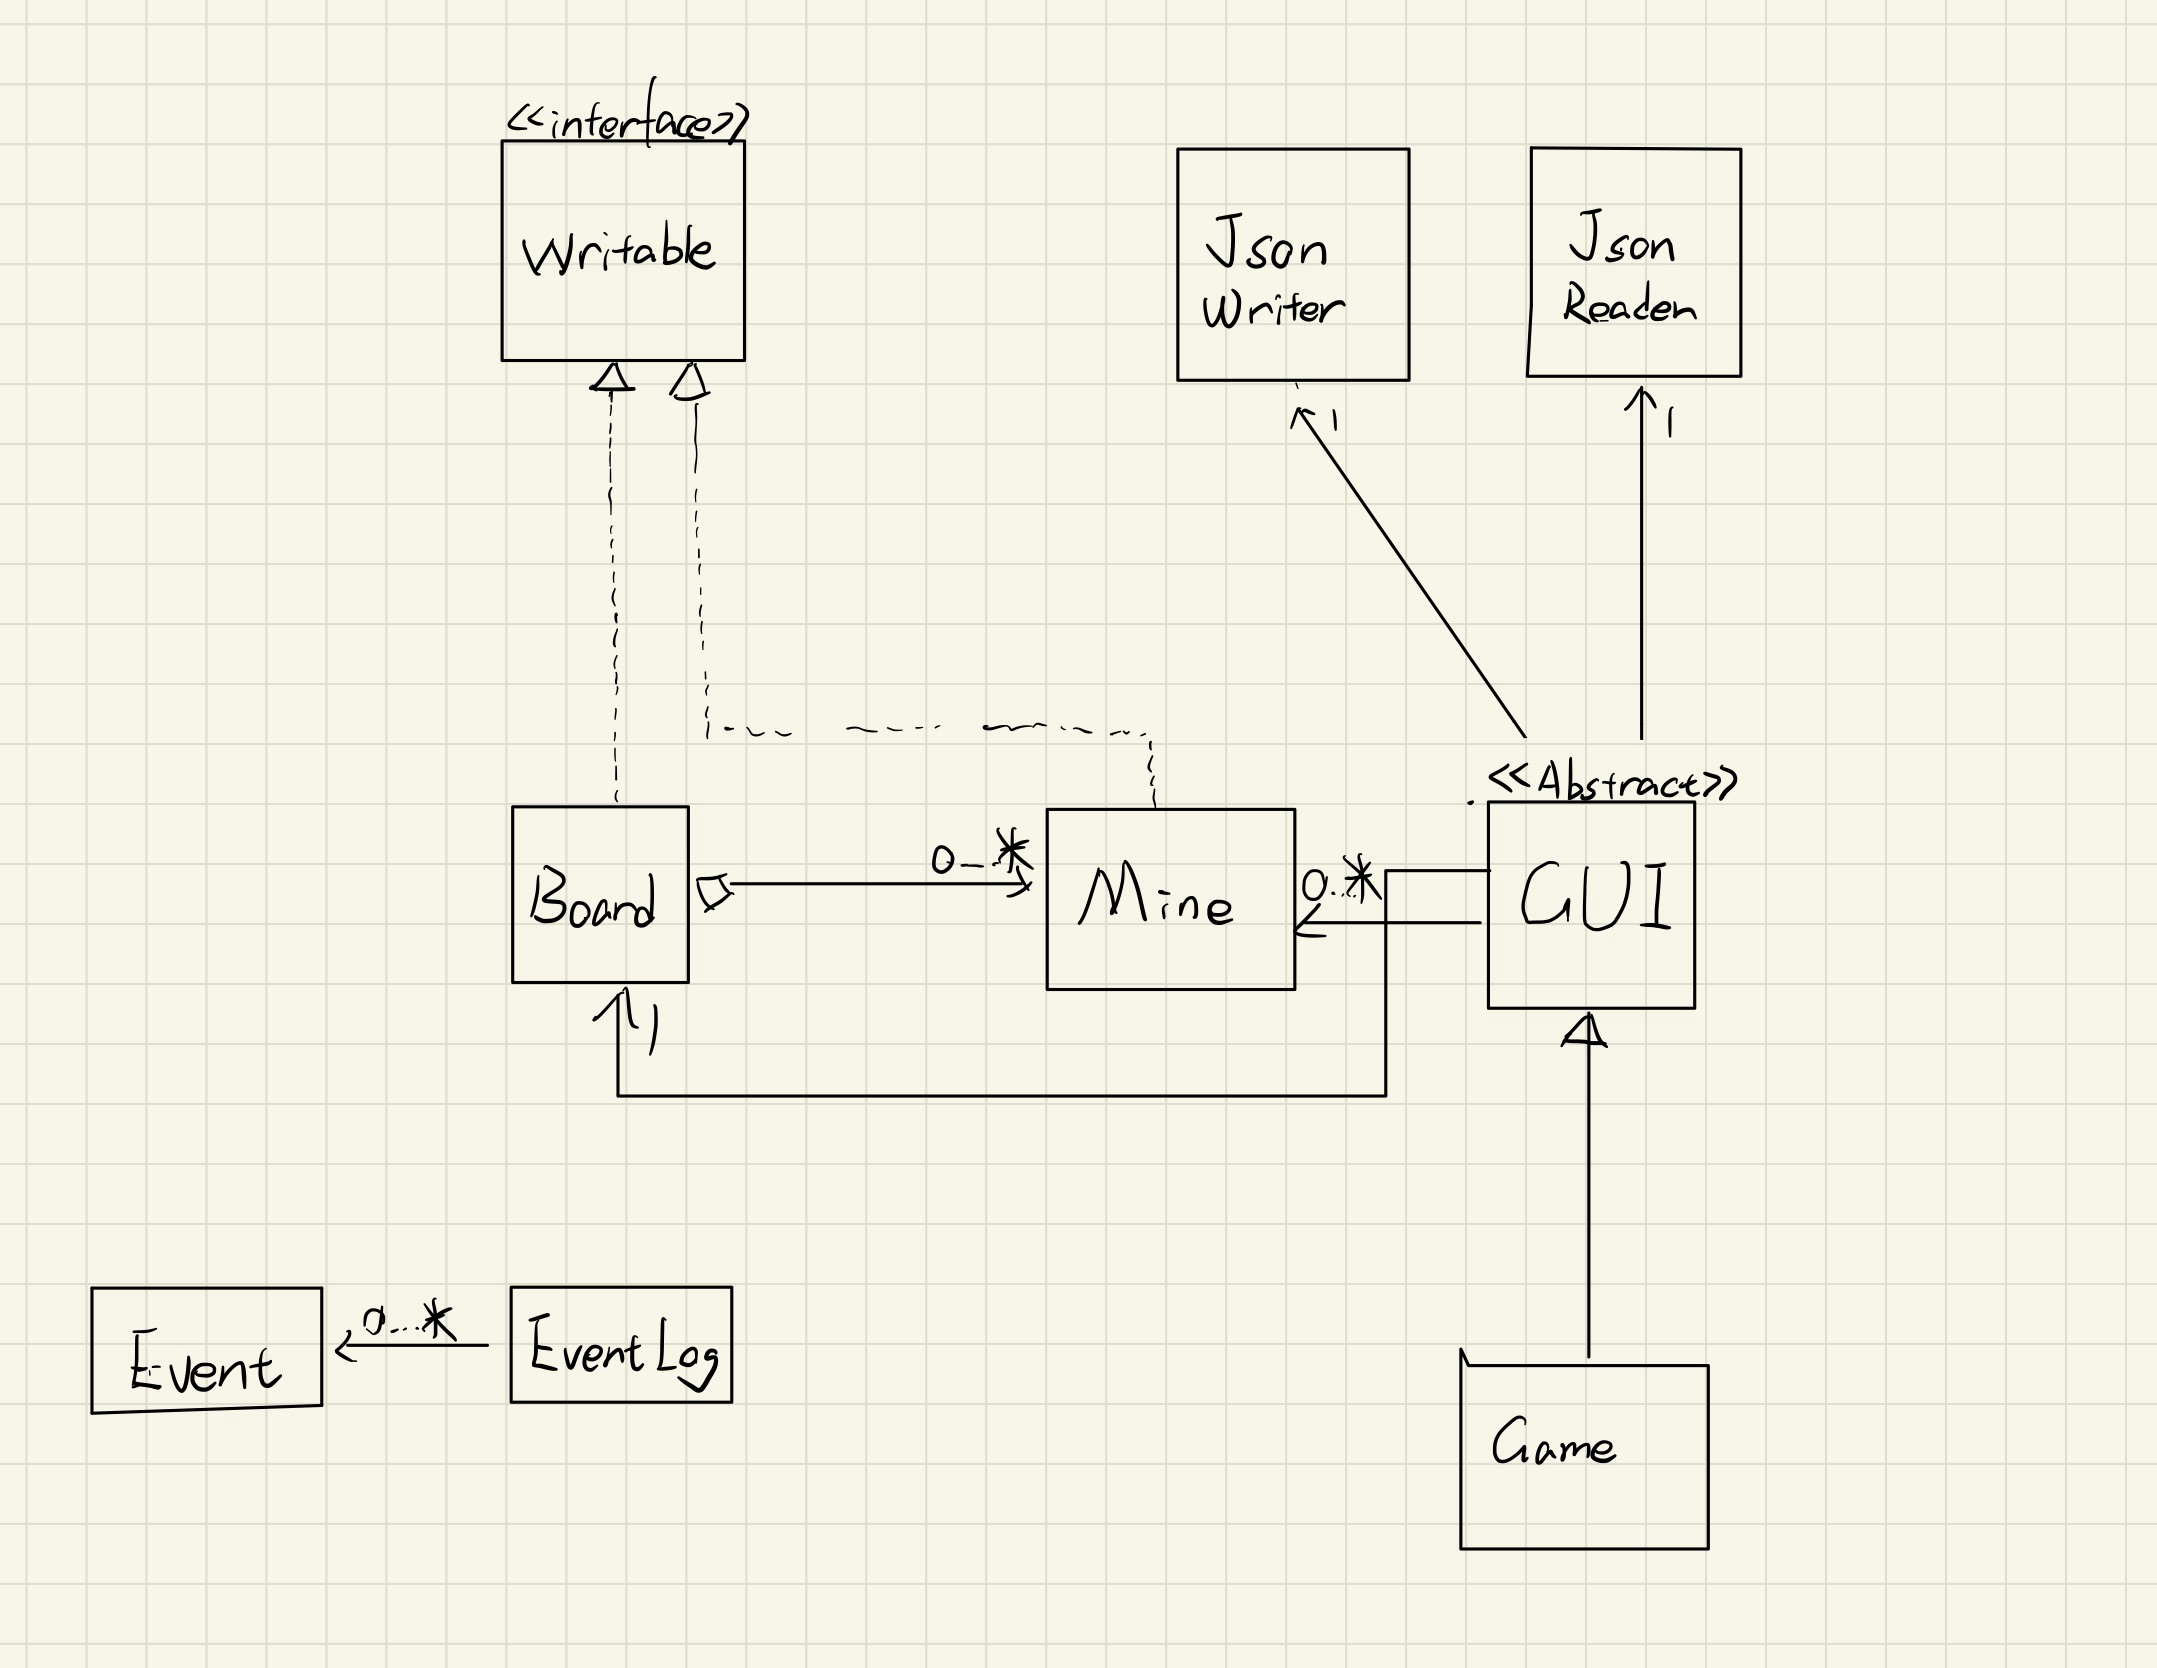 <<interface>>
Writable
Json
Writer
Json
Reader
1
1
<<Abstract>>
Board
0...*
Mine
0...*
GUI
1
Event
0...*
EventLog
Game